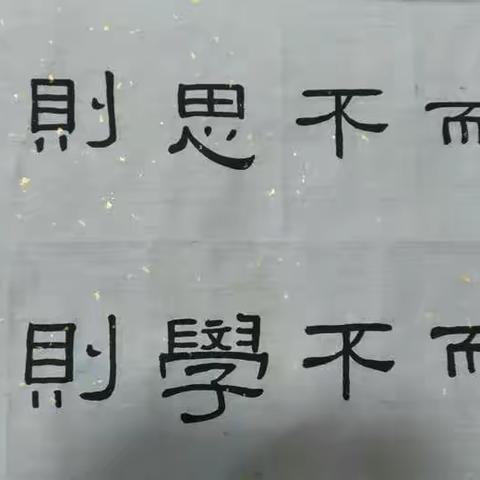 而不思則
而不學則